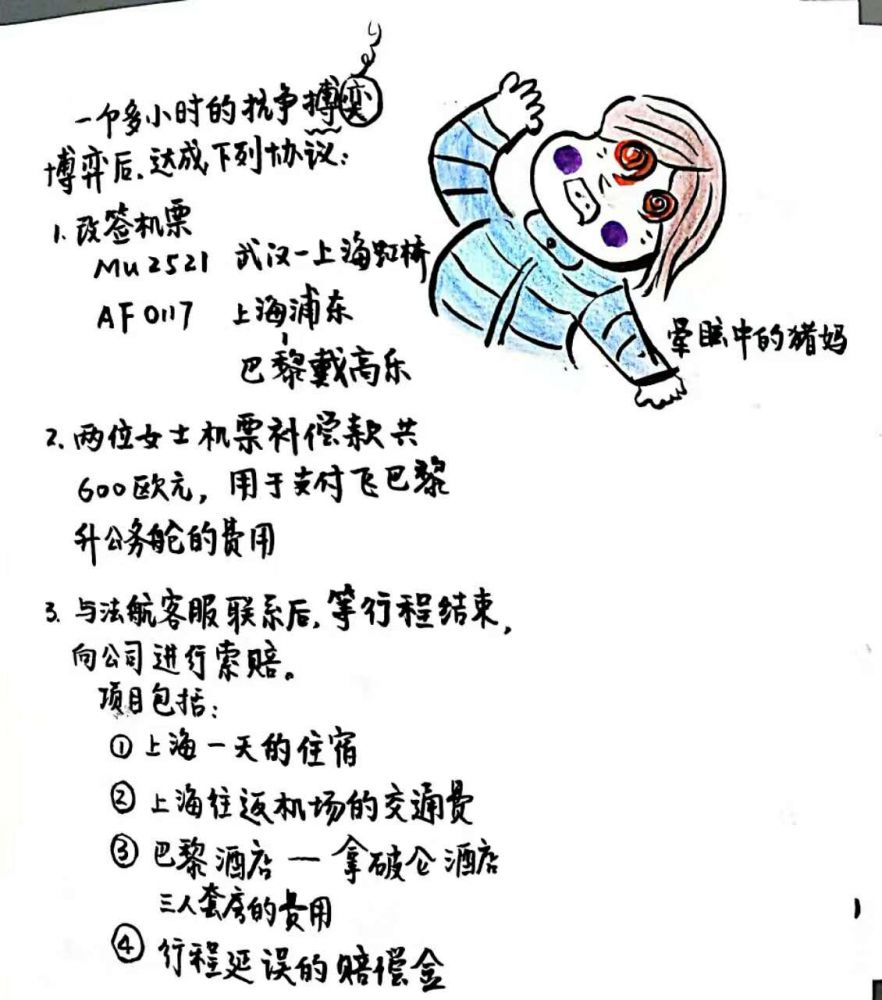 一个多小时的抗争搏奕
博弈后,达成下列协议:
1. 改签机票
Mu2521 武汉一上海虹桥
AF0117 上海浦东
巴黎戴高乐
晕眩中的猪妈
2. 两位女士机票补偿款共
600欧元,用于支付飞巴黎
升公务舱的费用
3. 与法航客服联系后,等行程结束,
向公司进行索赔。
项目包括:
① 上海一天的住宿
② 上海往返机场的交通费
③ 巴黎酒店一拿破仑酒店
三人套房的费用
④ 行程延误的赔偿金